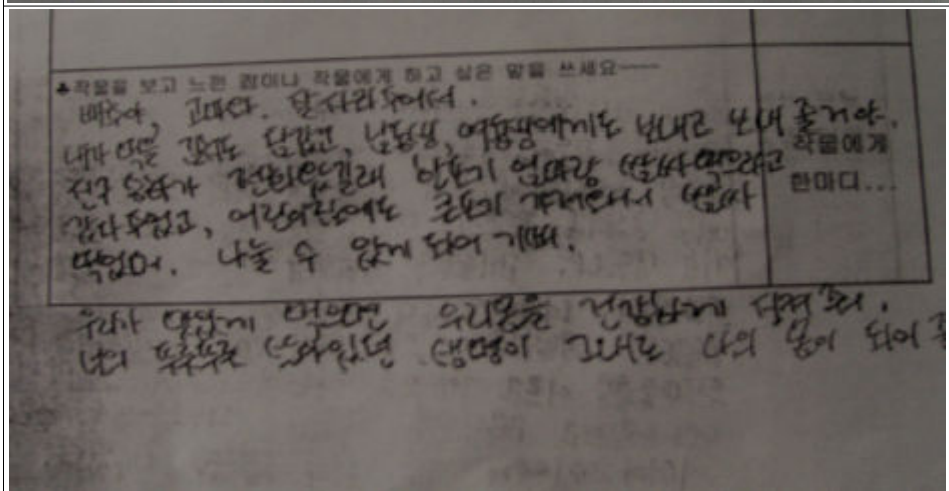 ♣작물을 보고 느낀 점이나 작물에게 하고 싶은 말을 쓰세요
배추야, 고마워. 잘 자라주어서.
내가 먹을 김치도 담갔고, 남동생, 여동생에게도 보내고 보내 줄거야.
작물에게
한마디...
친구 가 전화 한포기 엄마랑 쌈싸먹으라고
갖다주었고, 어린이집에도 큰포기 가져 쌈싸
먹었어. 나눌 수 있게 되어 기뻐.
우리가 맛있게 먹으면 우리몸을 건강하게
너의 푸릇푸릇 생명이 그대로 나의 몸이 되어